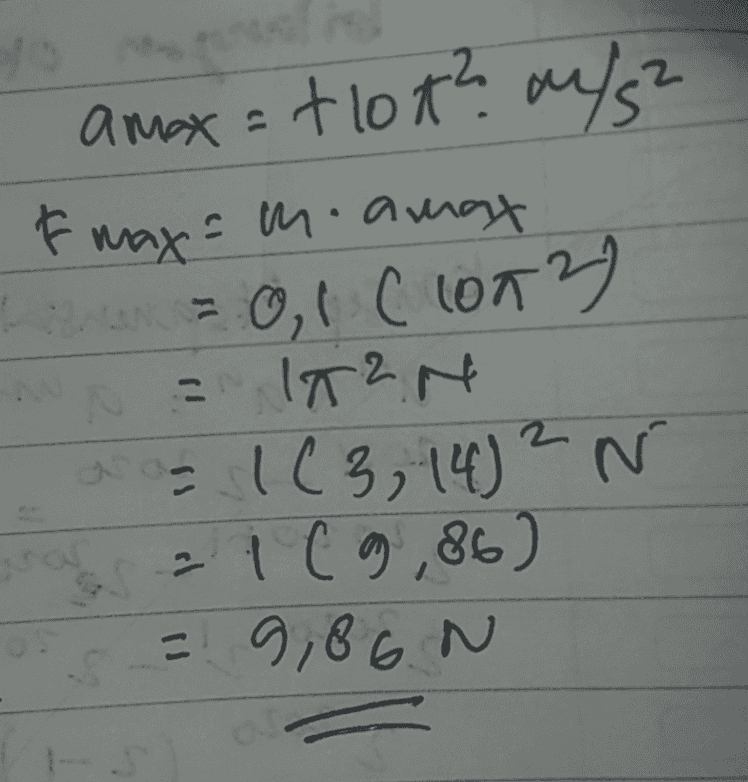 a max = +10π². m/s²
F max = m . a max
= 0,1 (10π²)
= 1π² N
= 1 (3,14)² N
= 1 (9,86)
= 9,86 N